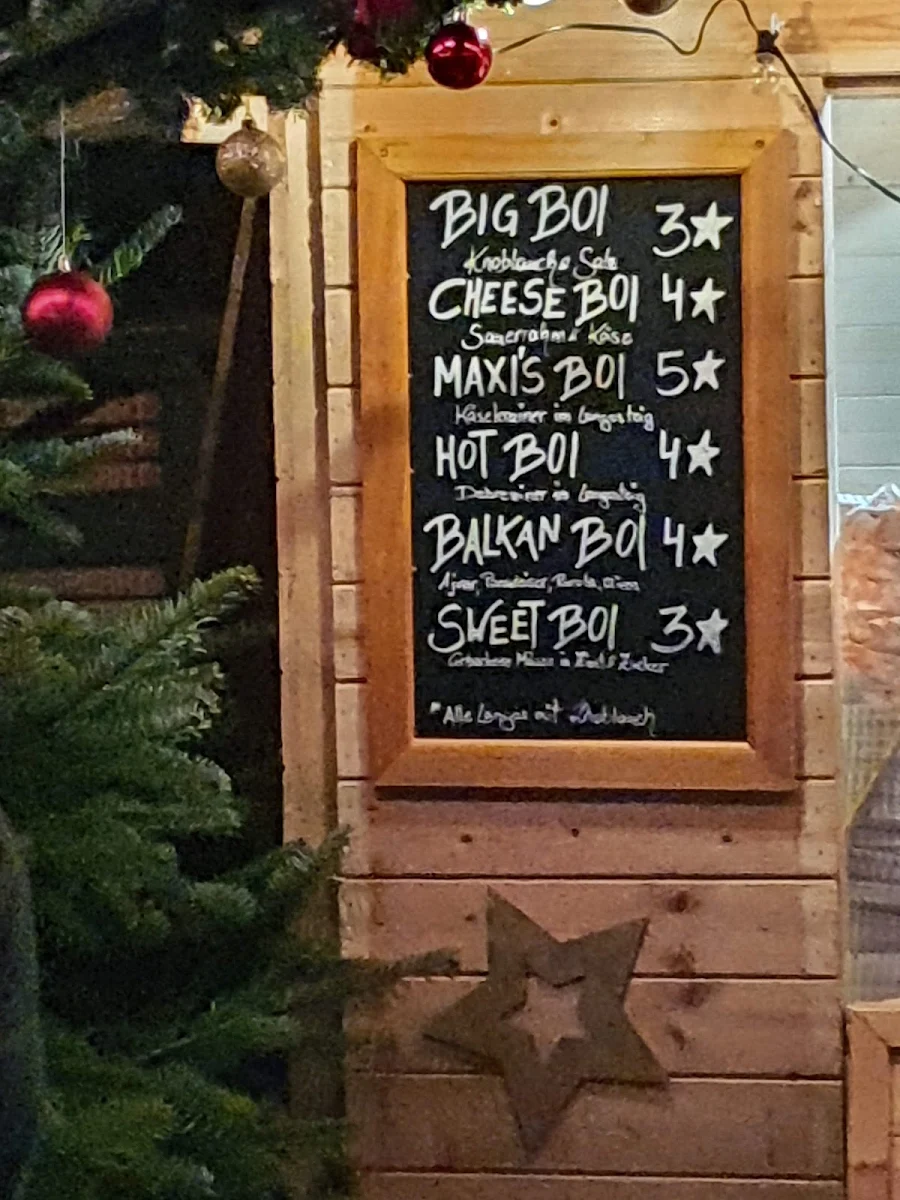 BIG BOI 3★
Knoblauch & Salz
CHEESE BOI 4★
Sauerrahm & Käse
MAXI'S BOI 5★
Käsekrainer in Langosteig
HOT BOI 4★
Debreziner in Langosteig
BALKAN BOI 4★
Ajvar,
SWEET BOI 3★
in Zimt & Zucker
*Alle Langos mit Knoblauch